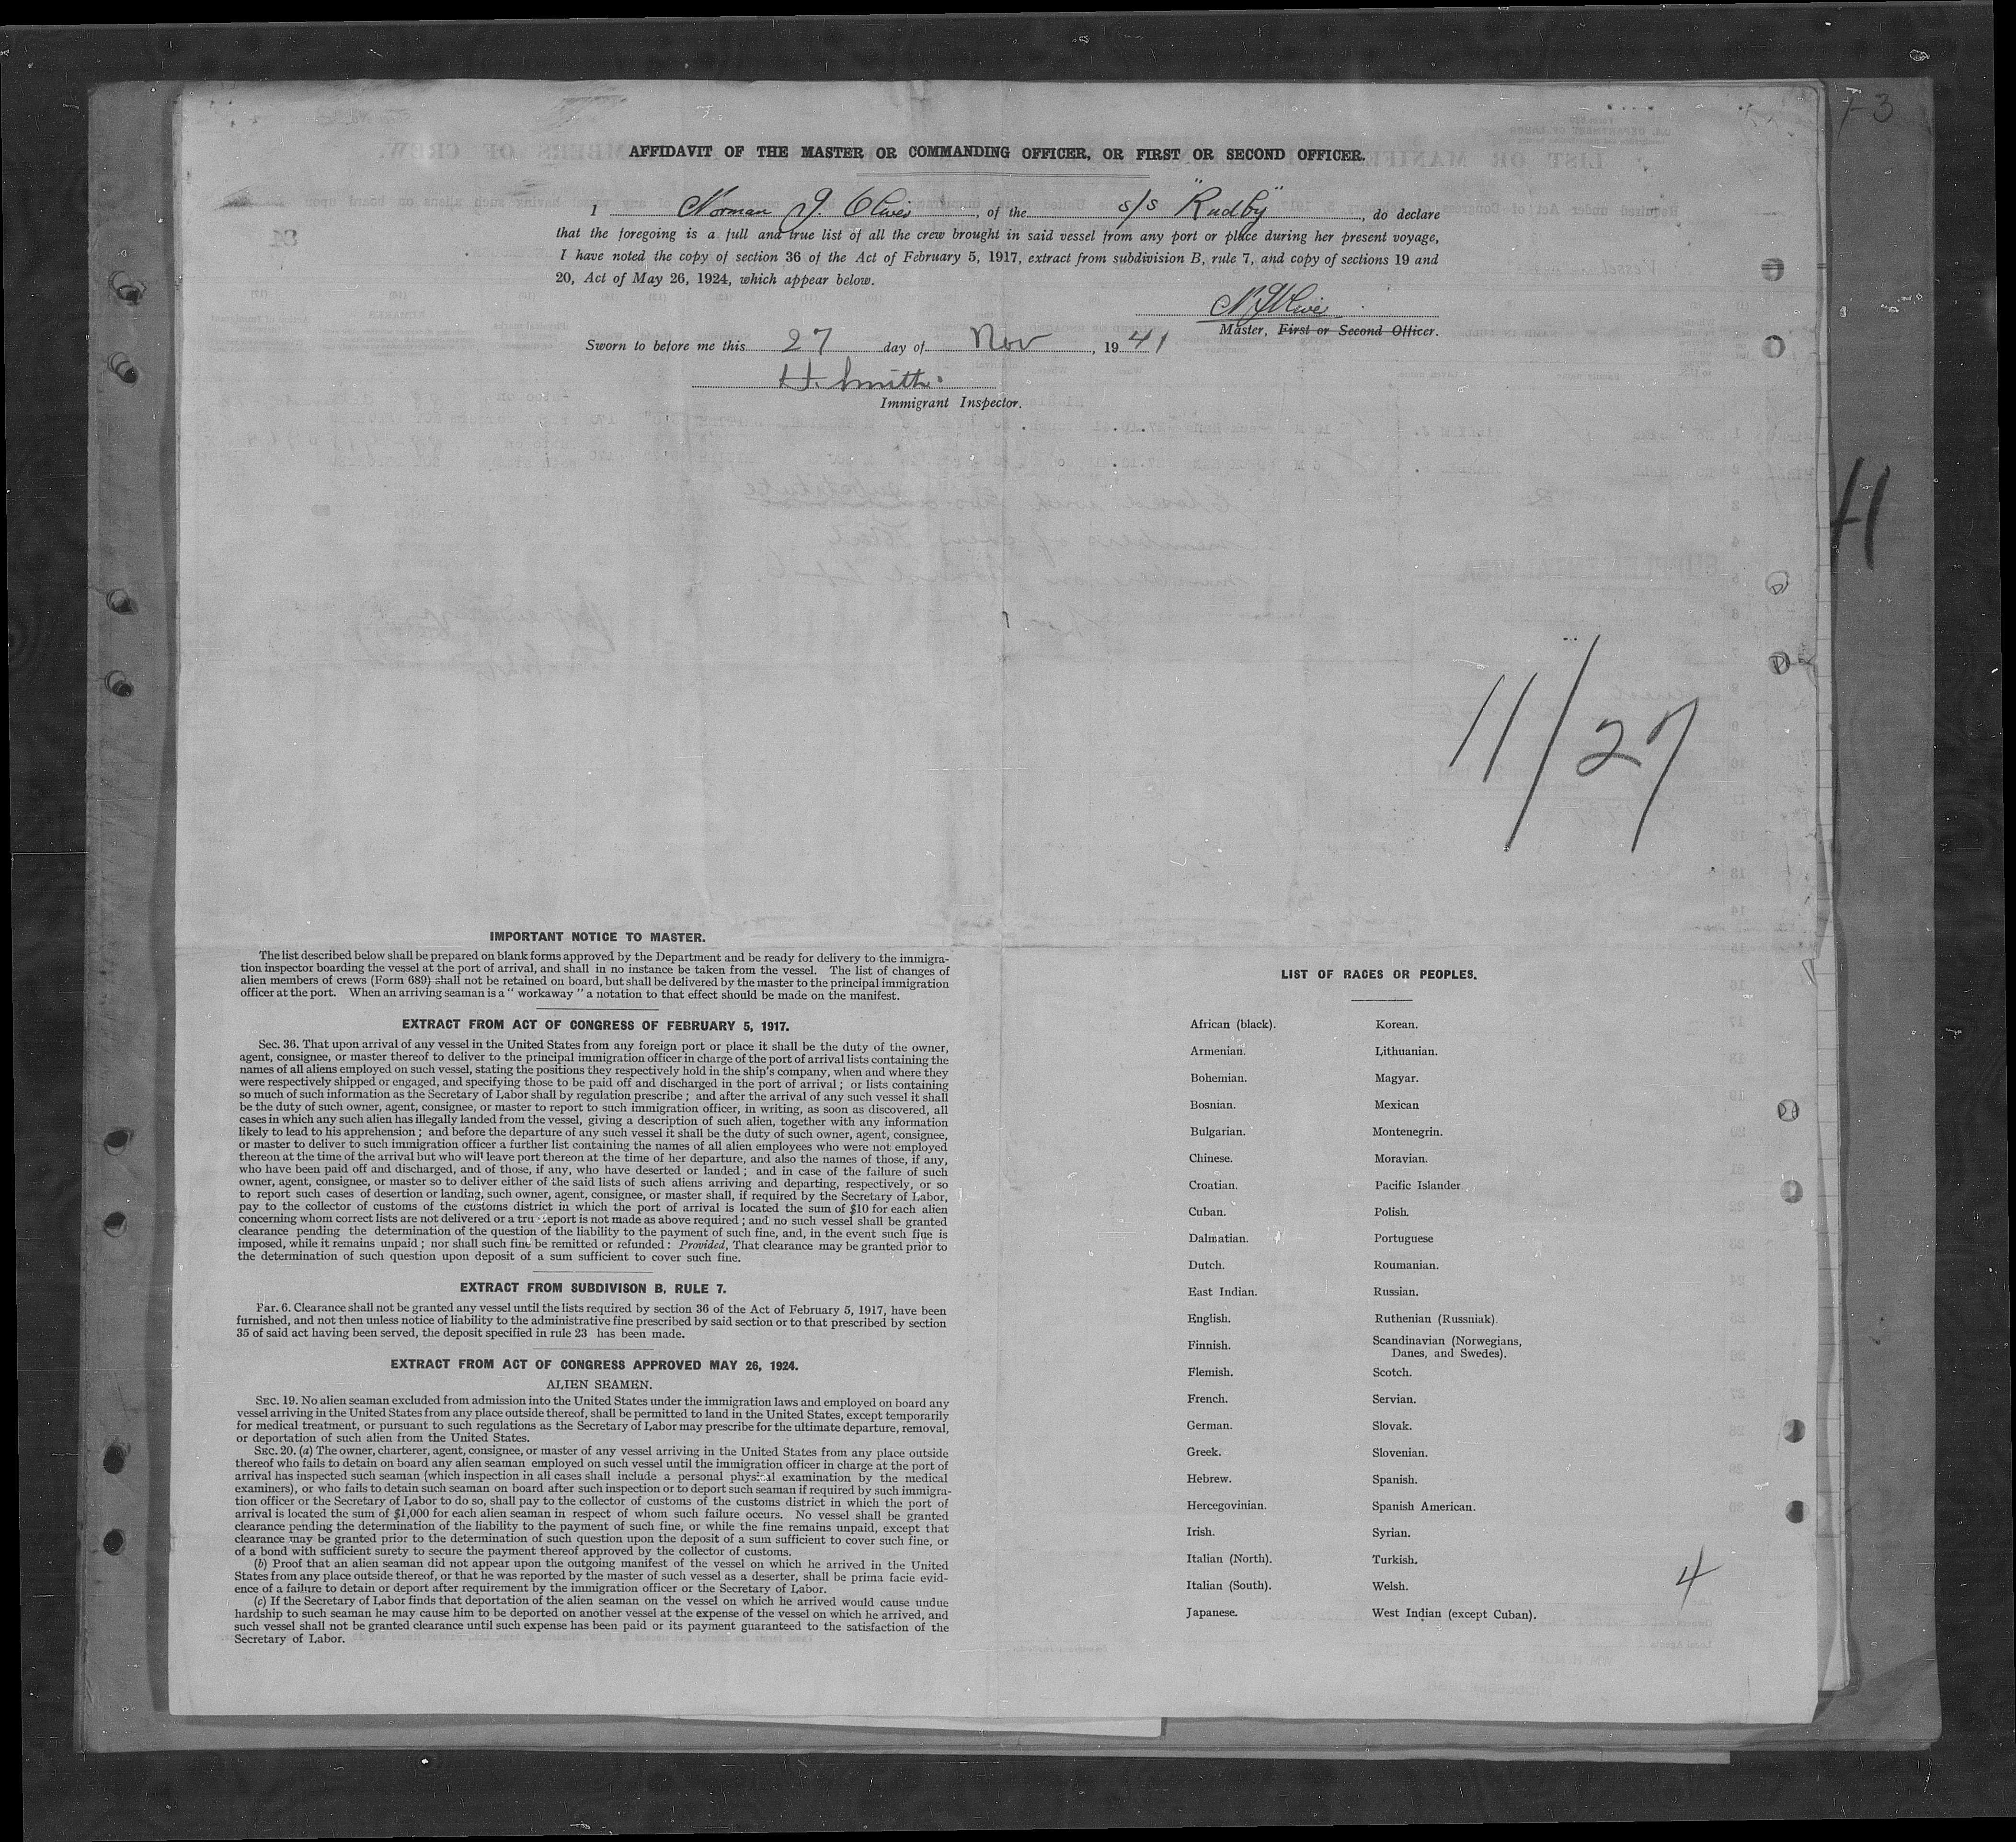 AFFIDAVIT OF THE MASTER OR COMMANDING OFFICER, OR FIRST OR SECOND OFFICER.
I Norman J. Oliver, of the s/s "Rudby", do declare
that the foregoing is a full and true list of all the crew brought in said vessel from any port or place during her present voyage,
I have noted the copy of section 36 of the Act of February 5, 1917, extract from subdivision B, rule 7, and copy of sections 19 and
20, Act of May 26, 1924, which appear below.
N J Oliver
Master, First or Second Officer.
Sworn to before me this 27 day of Nov, 1941
H. Smith.
Immigrant Inspector.
11/27
IMPORTANT NOTICE TO MASTER.
The list described below shall be prepared on blank forms approved by the Department and be ready for delivery to the immigra-
tion inspector boarding the vessel at the port of arrival, and shall in no instance be taken from the vessel. The list of changes of
alien members of crews (Form 689) shall not be retained on board, but shall be delivered by the master to the principal immigration
officer at the port. When an arriving seaman is a " workaway " a notation to that effect should be made on the manifest.
EXTRACT FROM ACT OF CONGRESS OF FEBRUARY 5, 1917.
Sec. 36. That upon arrival of any vessel in the United States from any foreign port or place it shall be the duty of the owner,
agent, consignee, or master thereof to deliver to the principal immigration officer in charge of the port of arrival lists containing the
names of all aliens employed on such vessel, stating the positions they respectively hold in the ship's company, when and where they
were respectively shipped or engaged, and specifying those to be paid off and discharged in the port of arrival ; or lists containing
so much of such information as the Secretary of Labor shall by regulation prescribe ; and after the arrival of any such vessel it shall
be the duty of such owner, agent, consignee, or master to report to such immigration officer, in writing, as soon as discovered, all
cases in which any such alien has illegally landed from the vessel, giving a description of such alien, together with any information
likely to lead to his apprehension ; and before the departure of any such vessel it shall be the duty of such owner, agent, consignee,
or master to deliver to such immigration officer a further list containing the names of all alien employees who were not employed
thereon at the time of the arrival but who will leave port thereon at the time of her departure, and also the names of those, if any,
who have been paid off and discharged, and of those, if any, who have deserted or landed ; and in case of the failure of such
owner, agent, consignee, or master so to deliver either of the said lists of such aliens arriving and departing, respectively, or so
to report such cases of desertion or landing, such owner, agent, consignee, or master shall, if required by the Secretary of Labor,
pay to the collector of customs of the customs district in which the port of arrival is located the sum of $10 for each alien
concerning whom correct lists are not delivered or a tru report is not made as above required ; and no such vessel shall be granted
clearance pending the determination of the question of the liability to the payment of such fine, and, in the event such fine is
imposed, while it remains unpaid ; nor shall such fine be remitted or refunded : Provided, That clearance may be granted prior to
the determination of such question upon deposit of a sum sufficient to cover such fine.
EXTRACT FROM SUBDIVISON B, RULE 7.
Par. 6. Clearance shall not be granted any vessel until the lists required by section 36 of the Act of February 5, 1917, have been
furnished, and not then unless notice of liability to the administrative fine prescribed by said section or to that prescribed by section
35 of said act having been served, the deposit specified in rule 23 has been made.
EXTRACT FROM ACT OF CONGRESS APPROVED MAY 26, 1924.
ALIEN SEAMEN.
SEC. 19. No alien seaman excluded from admission into the United States under the immigration laws and employed on board any
vessel arriving in the United States from any place outside thereof, shall be permitted to land in the United States, except temporarily
for medical treatment, or pursuant to such regulations as the Secretary of Labor may prescribe for the ultimate departure, removal,
or deportation of such alien from the United States.
SEC. 20. (a) The owner, charterer, agent, consignee, or master of any vessel arriving in the United States from any place outside
thereof who fails to detain on board any alien seaman employed on such vessel until the immigration officer in charge at the port of
arrival has inspected such seaman (which inspection in all cases shall include a personal physical examination by the medical
examiners), or who fails to detain such seaman on board after such inspection or to deport such seaman if required by such immigra-
tion officer or the Secretary of Labor to do so, shall pay to the collector of customs of the customs district in which the port of
arrival is located the sum of $1,000 for each alien seaman in respect of whom such failure occurs. No vessel shall be granted
clearance pending the determination of the liability to the payment of such fine, or while the fine remains unpaid, except that
clearance may be granted prior to the determination of such question upon the deposit of a sum sufficient to cover such fine, or
of a bond with sufficient surety to secure the payment thereof approved by the collector of customs.
(b) Proof that an alien seaman did not appear upon the outgoing manifest of the vessel on which he arrived in the United
States from any place outside thereof, or that he was reported by the master of such vessel as a deserter, shall be prima facie evid-
ence of a failure to detain or deport after requirement by the immigration officer or the Secretary of Labor.
(c) If the Secretary of Labor finds that deportation of the alien seaman on the vessel on which he arrived would cause undue
hardship to such seaman he may cause him to be deported on another vessel at the expense of the vessel on which he arrived, and
such vessel shall not be granted clearance until such expense has been paid or its payment guaranteed to the satisfaction of the
Secretary of Labor.
LIST OF RACES OR PEOPLES.
African (black). Korean.
Armenian. Lithuanian.
Bohemian. Magyar.
Bosnian. Mexican
Bulgarian. Montenegrin.
Chinese. Moravian.
Croatian. Pacific Islander
Cuban. Polish.
Dalmatian. Portuguese
Dutch. Roumanian.
East Indian. Russian.
English. Ruthenian (Russniak).
Finnish. Scandinavian (Norwegians,
Danes, and Swedes).
Flemish. Scotch.
French. Servian.
German. Slovak.
Greek. Slovenian.
Hebrew. Spanish.
Hercegovinian. Spanish American.
Irish. Syrian.
Italian (North). Turkish.
Italian (South). Welsh.
Japanese. West Indian (except Cuban).
4